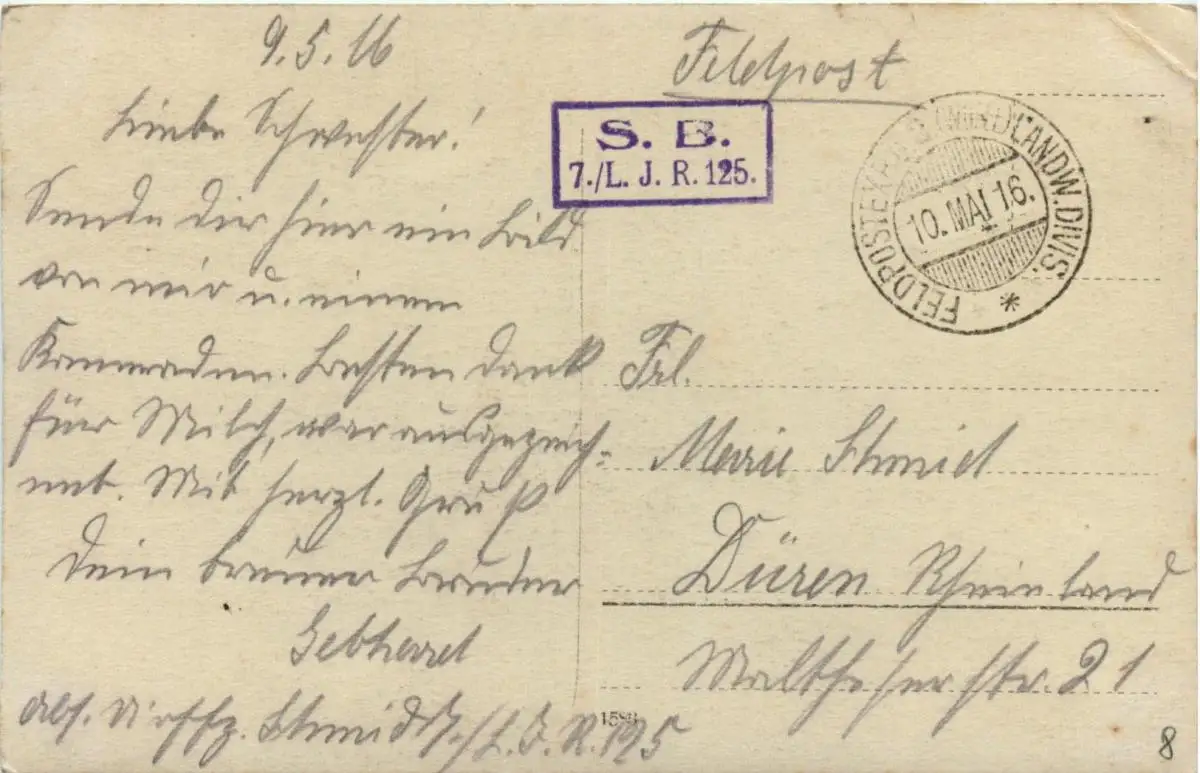 9.5.16
Liebe Schwester!
Sende dir hier ein Bild
von mir u. einem
Kameraden. Besten Dank
für Milch, war ausgezeich-
net. Mit herzl. Gruß
Dein treuer Bruder
Gebhard
Abs. Utffz. Schmid 7./L.J.R.125
Feldpost
S. B.
7./L. J. R. 125.
FELDPOSTEXP. LANDW. DIVIS. *
10. MAI 16.
Frl.
Marie Schmid
Düren Rheinland
Malteserstr. 21
158
8